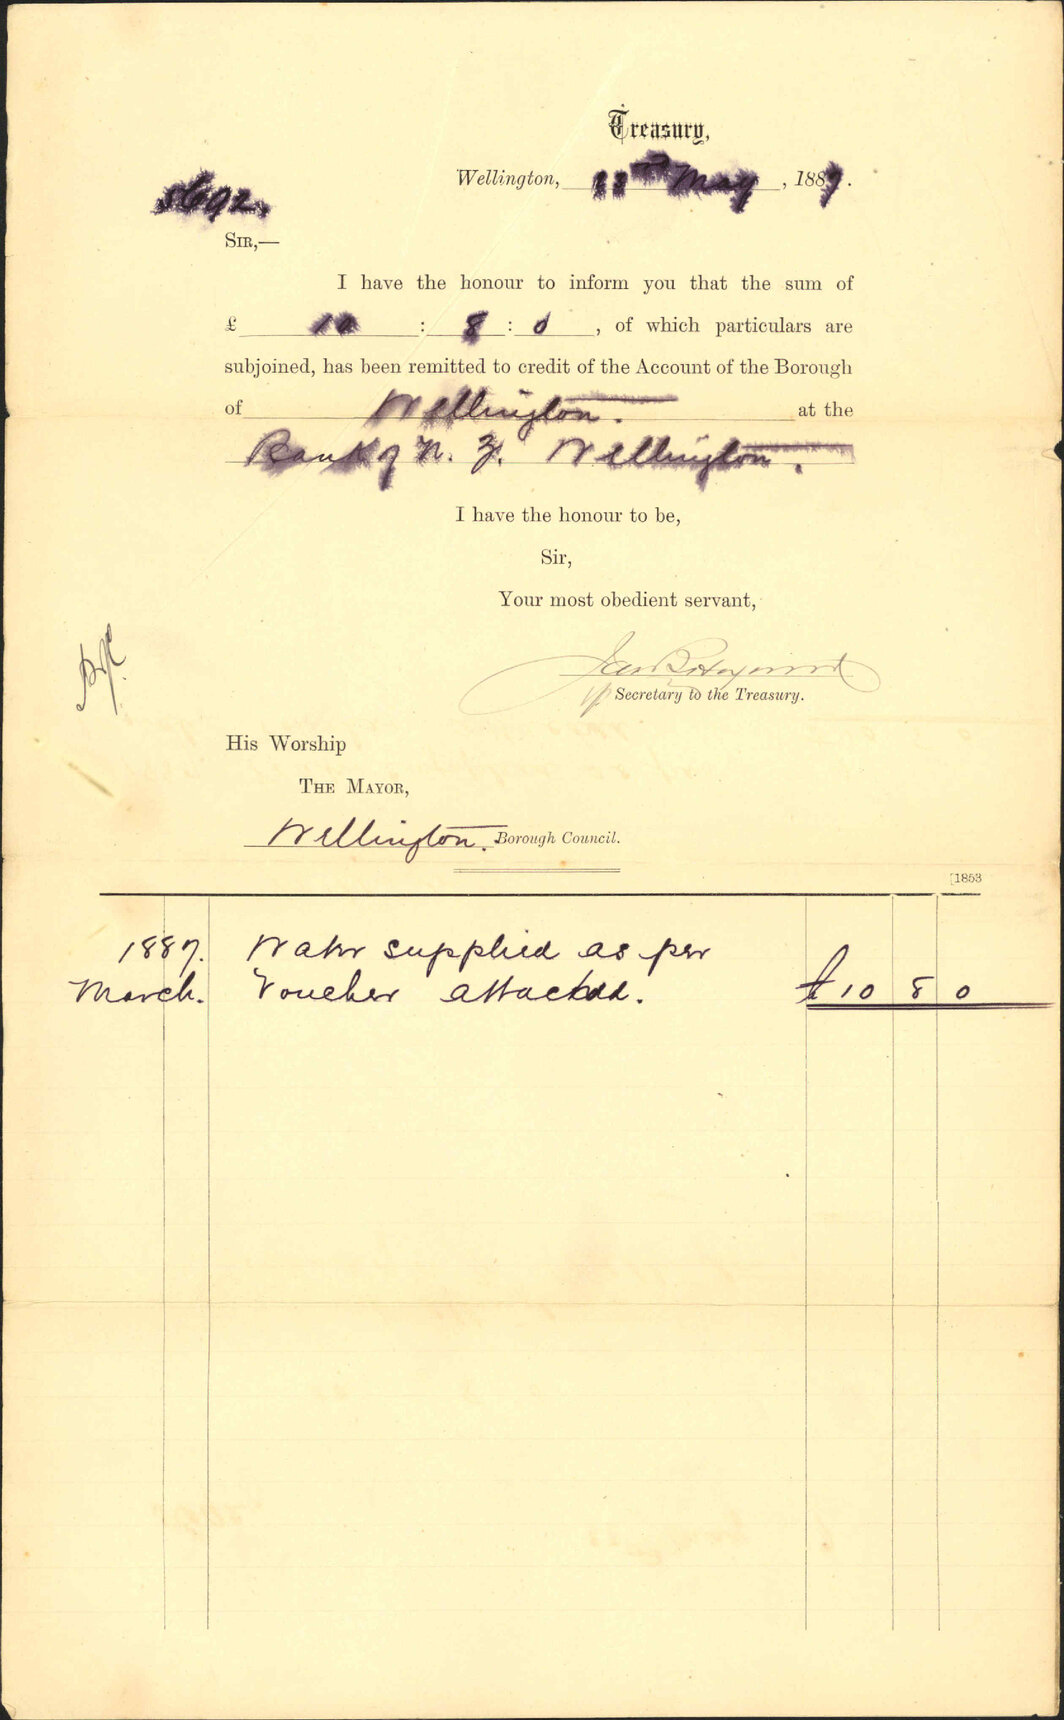 Treasury,
Wellington, May, 1887.
5692.
SIR,—
I have the honour to inform you that the sum of
£ 10 : 8 : 0, of which particulars are
subjoined, has been remitted to credit of the Account of the Borough
of Wellington. at the
Bank of N. Z. Wellington.
I have the honour to be,
Sir,
Your most obedient servant,
Secretary to the Treasury.
His Worship
THE MAYOR,
Wellington. Borough Council.
[1853
1887. Water supplied as per
March. Voucher attached. £10 8 0